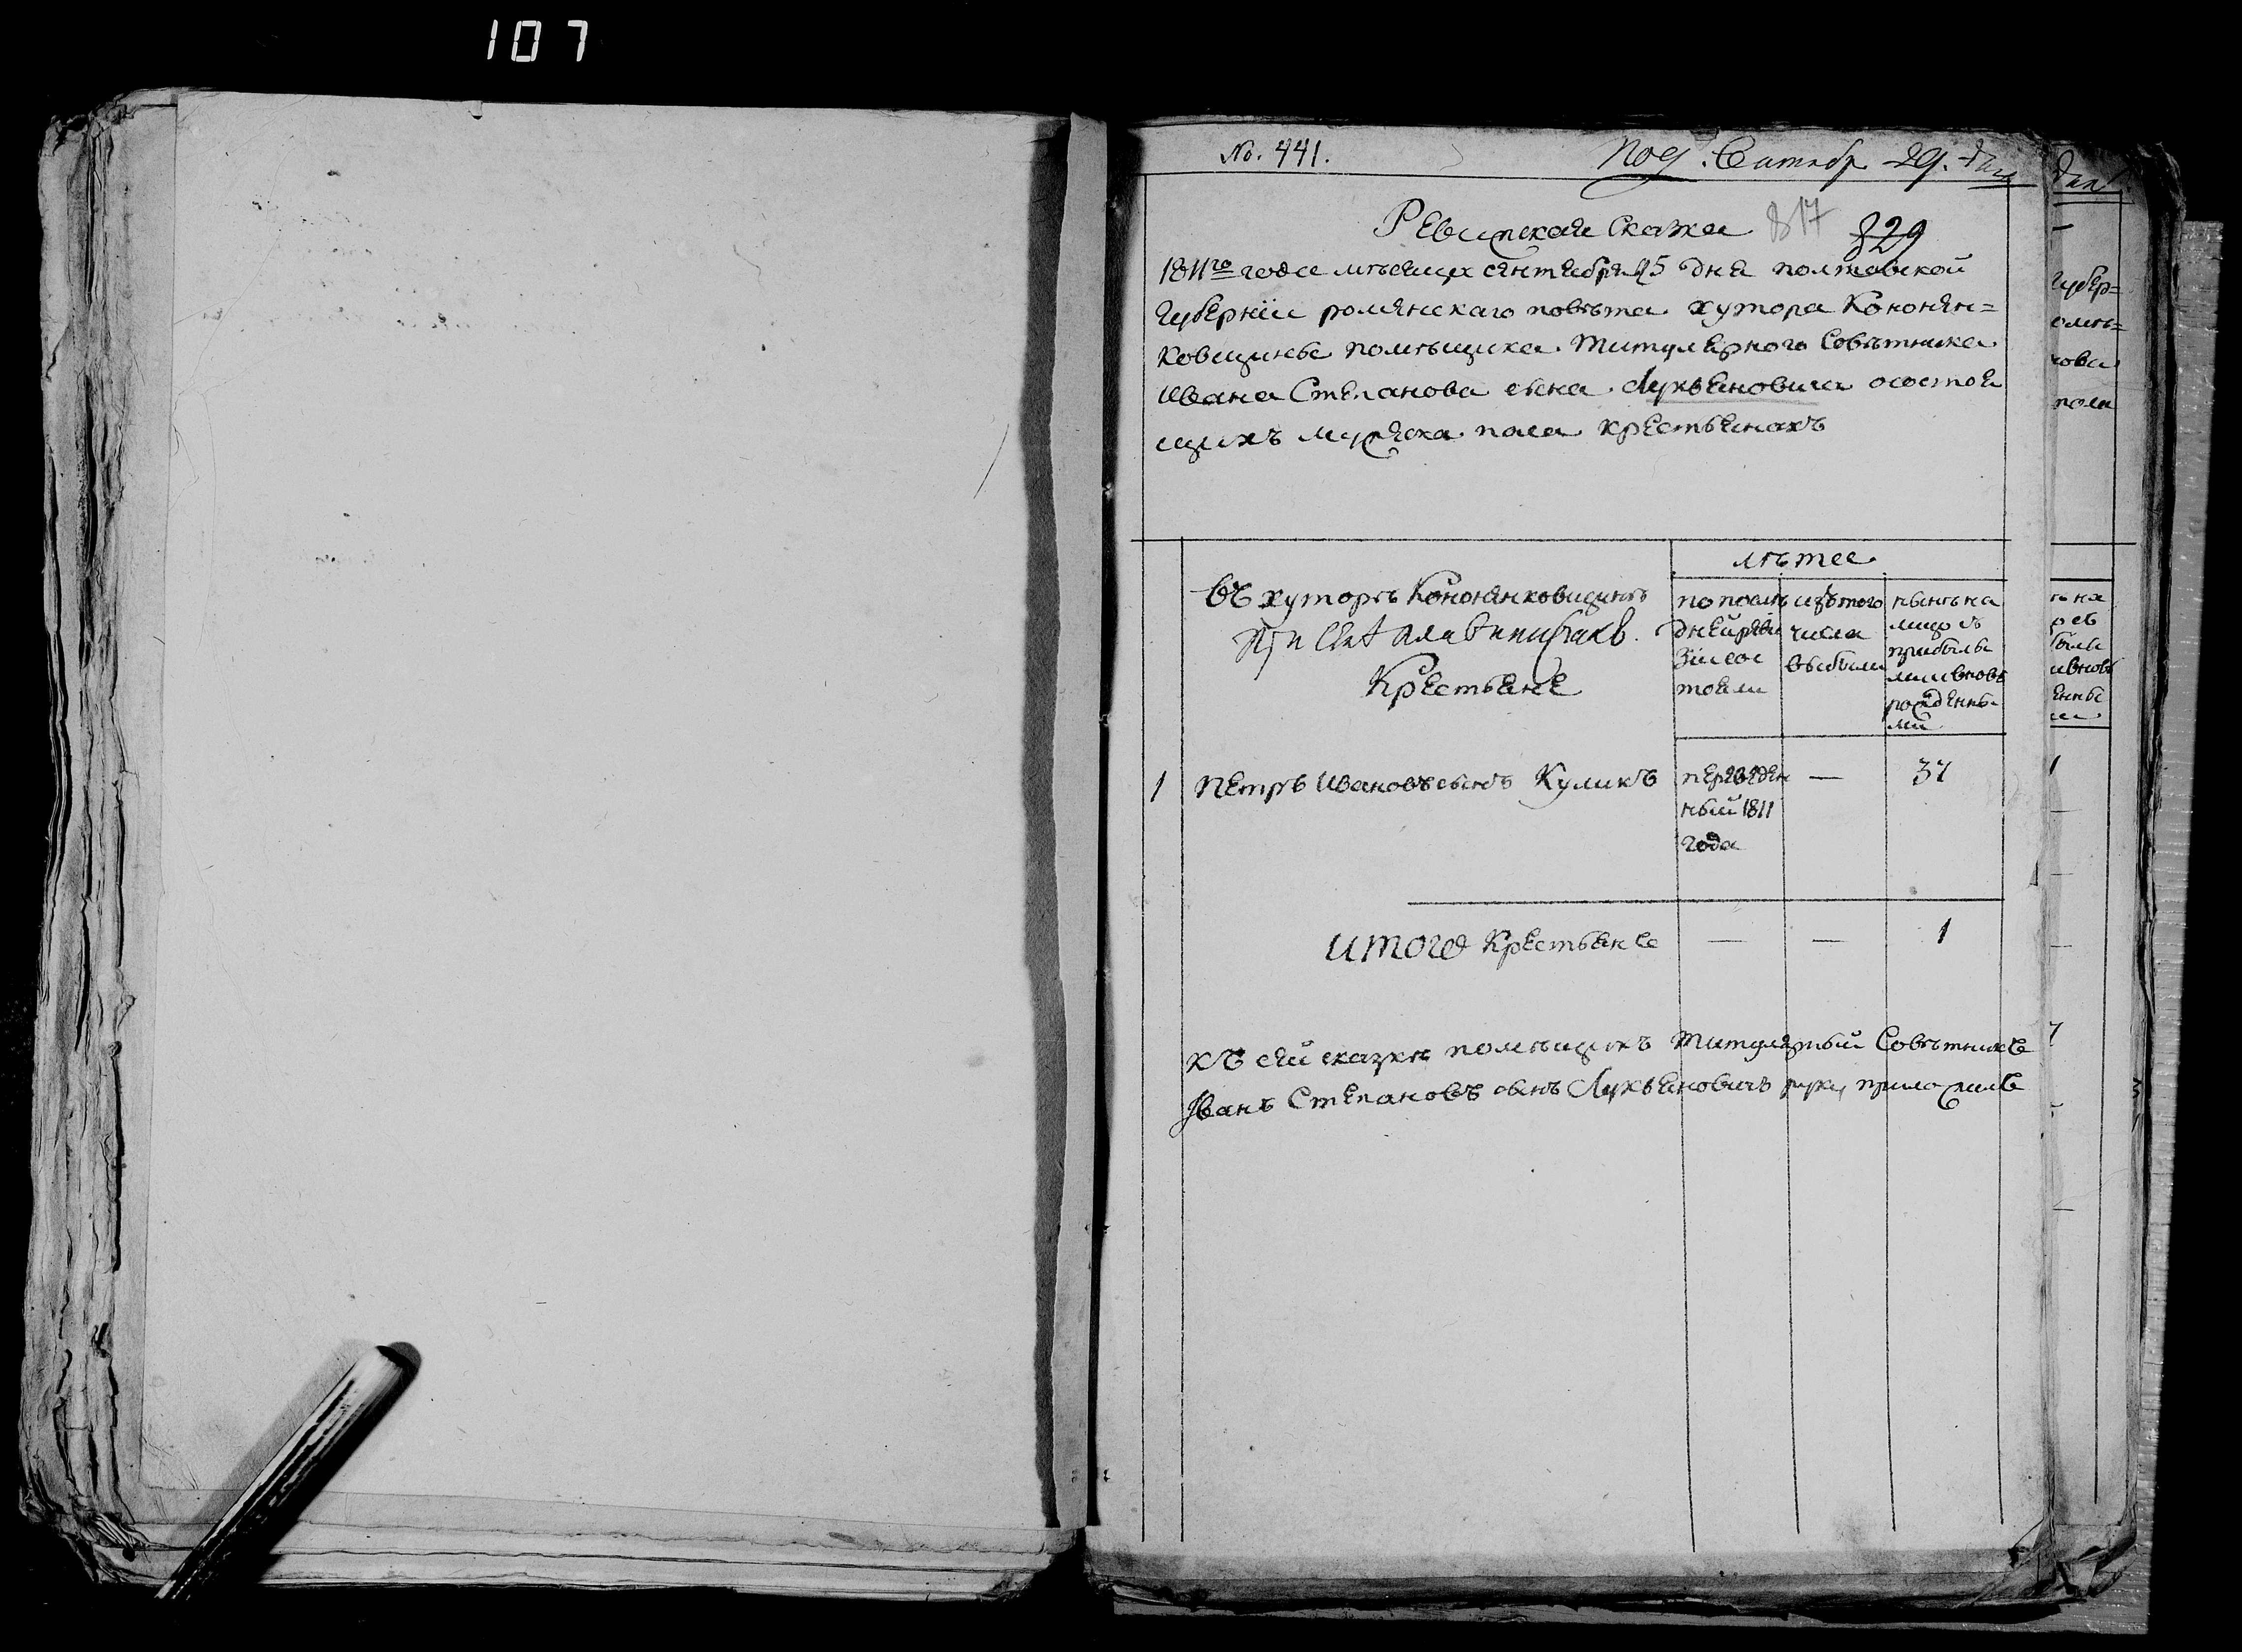 107
No. 441.
Под. Сентябр 29. дня
Ревизская Сказка 817 829
1811го года мѣсяца сентября 15 дня полтавской
Губерніи роменскаго повѣта хутора Кононен=
ковщины помѣщика Титулярного Совѣтника
Ивана Степанова сына Лукьяновича осостоя
щихъ мужеска пола крестьянахъ
лѣта
Въ хуторѣ Кононенковщинѣ
при селѣ
Крестьяне
по послѣ
дней реви
зіи сос
тояли
изъ того
числа
выбыли
нынѣ на
лицо съ
прибылы
ми и вновь
рожденны
ми
1 Петръ Ивановъ сынъ Куликъ
переведен
ный 1811
года
— 37
Итого Крестьяне — — 1
Къ сей сказкѣ помѣщикъ Титулярный Совѣтникъ
Іванъ Степановъ сынъ Лукьяновичъ руку приложилъ
дня
губер=
роме=
нова
пола